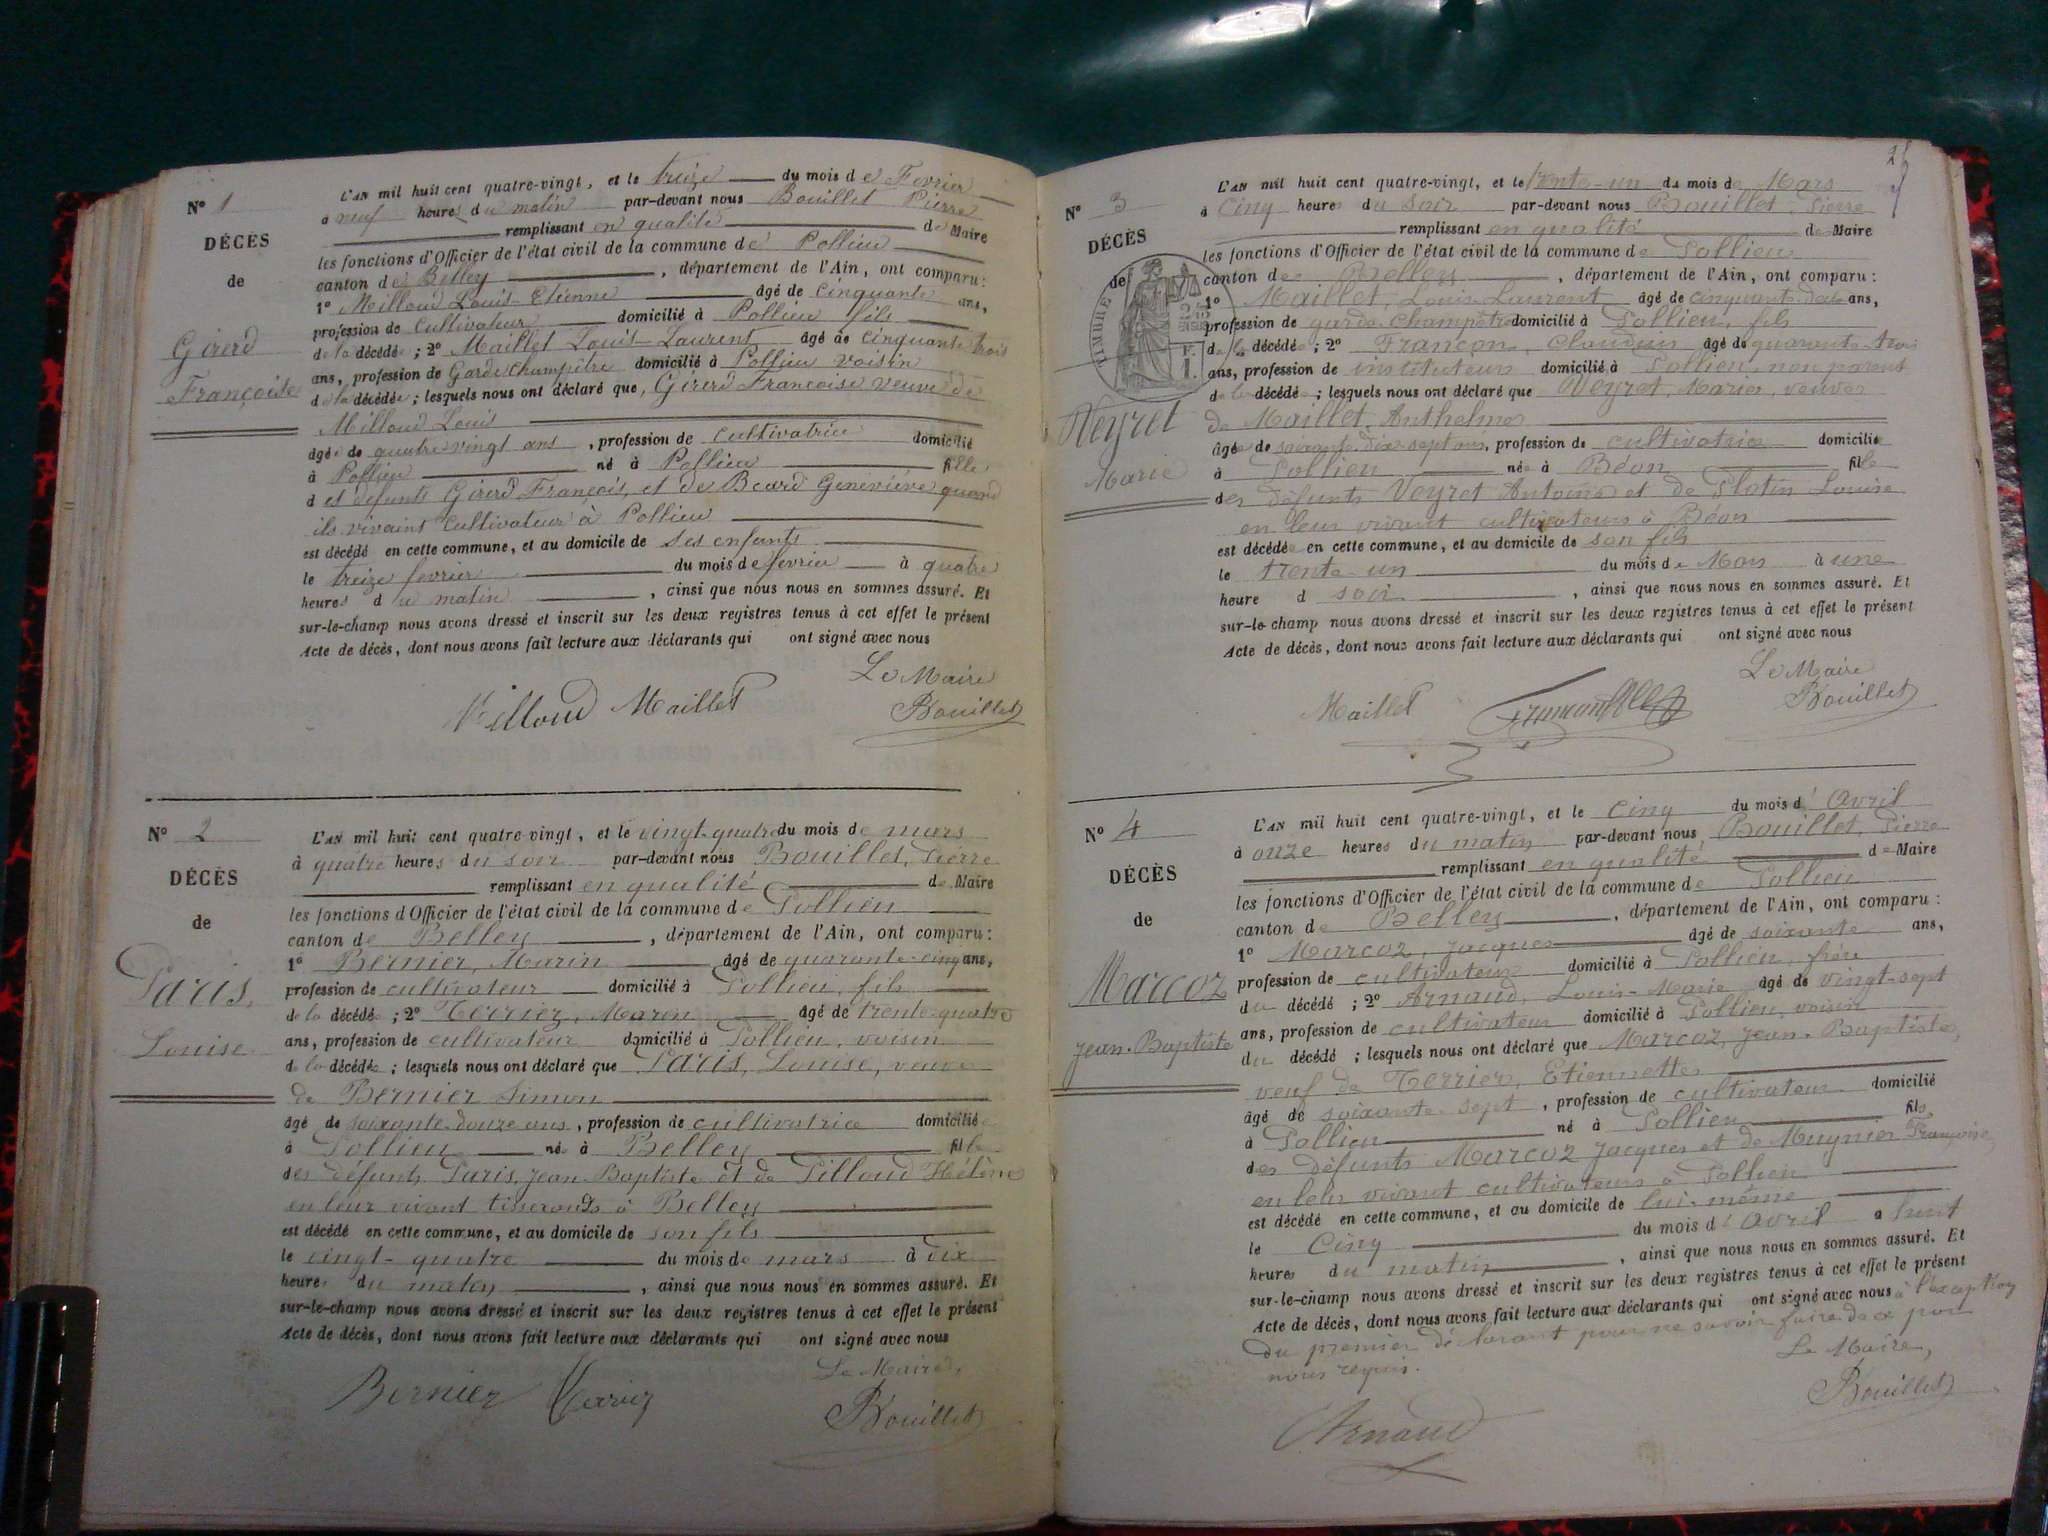 N° 1
DÉCÈS
de
Girerd
Françoise
L'AN mil huit cent quatre-vingt, et le treize du mois de Fevrier
à neuf heures du matin par-devant nous Bouillet Pierre
remplissant en qualité de Maire
les fonctions d'Officier de l'état civil de la commune de Pollieu
canton de Belley, département de l'Ain, ont comparu:
1° Milloud Louis Etienne âgé de cinquante ans,
profession de cultivateur domicilié à Pollieu fils
de la décédée; 2° Maillet Louis Laurent âgé de cinquante trois
ans, profession de Garde champêtre domicilié à Pollieu voisin
de la décédée; lesquels nous ont déclaré que, Girerd Francoise veuve de
Milloud Louis
âgée de quatre vingt ans, profession de cultivatrice domicilié
à Pollieu né à Pollieu fille
d es defunts Girerd François, et de Beard Geneviéve quand
ils vivaint cultivateur à Pollieu
est décédé en cette commune, et au domicile de ses enfants
le treize fevrier du mois de fevrier à quatre
heures du matin, ainsi que nous nous en sommes assuré. Et
sur-le-champ nous avons dressé et inscrit sur les deux registres tenus à cet effet le présent
Acte de décès, dont nous avons fait lecture aux déclarants qui ont signé avec nous
Le Maire
Milloud Maillet Bouillet
N° 2
DÉCÈS
de
Paris,
Louise
L'AN mil huit cent quatre-vingt, et le vingt-quatre du mois de mars
à quatre heures du soir par-devant nous Bouillet, Pierre
remplissant en qualité de Maire
les fonctions d'Officier de l'état civil de la commune de Pollieu
canton de Belley, département de l'Ain, ont comparu:
1° Bernier, Marin âgé de quarante-cinq ans,
profession de cultivateur domicilié à Pollieu, fils
de la décédée; 2° Terrier, Marin âgé de trente-quatre
ans, profession de cultivateur domicilié à Pollieu, voisin
de la décédée; lesquels nous ont déclaré que Paris, Louise, veuve
de Bernier Simon
âgé de soixante-douze ans, profession de cultivatrice domiciliée
à Pollieu née à Belley fille
des défunts Paris, Jean Baptiste et de Pilloud Hélène
en leur vivant tisserands à Belley
est décédé en cette commune, et au domicile de son fils
le vingt-quatre du mois de mars à dix
heures du matin, ainsi que nous nous en sommes assuré. Et
sur-le-champ nous avons dressé et inscrit sur les deux registres tenus à cet effet le présent
Acte de décès, dont nous avons fait lecture aux déclarants qui ont signé avec nous
Le Maire,
Bernier Terrier Bouillet
N° 3
DÉCÈS
de
TIMBRE
Veyret
Marie
L'AN mil huit cent quatre-vingt, et le trente-un du mois de Mars
à cinq heures du soir par-devant nous Bouillet, Pierre
remplissant en qualité de Maire
les fonctions d'Officier de l'état civil de la commune de Pollieu
canton de Belley, département de l'Ain, ont comparu:
1° Maillet, Louis-Laurent âgé de cinquante-deux ans,
profession de garde champêtre domicilié à Pollieu, fils
de la décédée; 2° Françon, Claudius âgé de quarante-trois
ans, profession de instituteur domicilié à Pollieu, non parent
de la décédée; lesquels nous ont déclaré que Veyret, Marie, veuve
de Maillet, Anthelme
âgée de soixante dix sept ans, profession de cultivatrice domiciliée
à Pollieu née à Béon fille
des défunts Veyret Antoine et de Plotin Louise
en leur vivant cultivateurs à Béon
est décédée en cette commune, et au domicile de son fils
le trente un du mois de Mars à une
heure d soir, ainsi que nous nous en sommes assuré. Et
sur-le-champ nous avons dressé et inscrit sur les deux registres tenus à cet effet le présent
Acte de décès, dont nous avons fait lecture aux déclarants qui ont signé avec nous
Le Maire
Maillet Bouillet
N° 4
DÉCÈS
de
Marcoz
Jean-Baptiste
L'AN mil huit cent quatre-vingt, et le cinq du mois d'Avril
à onze heures du matin par-devant nous Bouillet, Pierre
remplissant en qualité de Maire
les fonctions d'Officier de l'état civil de la commune de Pollieu
canton de Belley, département de l'Ain, ont comparu:
1° Marcoz, Jacques âgé de soixante ans,
profession de cultivateur domicilié à Pollieu, frère
du décédé; 2° Arnaud, Louis-Marie âgé de vingt-sept
ans, profession de cultivateur domicilié à Pollieu, voisin
du décédé; lesquels nous ont déclaré que Marcoz, Jean-Baptiste,
veuf de Terrier, Etiennette
âgé de soixante-sept, profession de cultivateur domicilié
à Pollieu né à Pollieu fils,
des défunts Marcoz Jacques et de Mugnier Françoise,
en leur vivant cultivateurs à Pollieu
est décédé en cette commune, et au domicile de lui-même
le Cinq du mois d'Avril à huit
heures du matin, ainsi que nous nous en sommes assuré. Et
sur-le-champ nous avons dressé et inscrit sur les deux registres tenus à cet effet le présent
Acte de décès, dont nous avons fait lecture aux déclarants qui ont signé avec nous à l'exception
du premier déclarant pour ne savoir faire de ce par
nous requis.
Le Maire,
Arnaud Bouillet